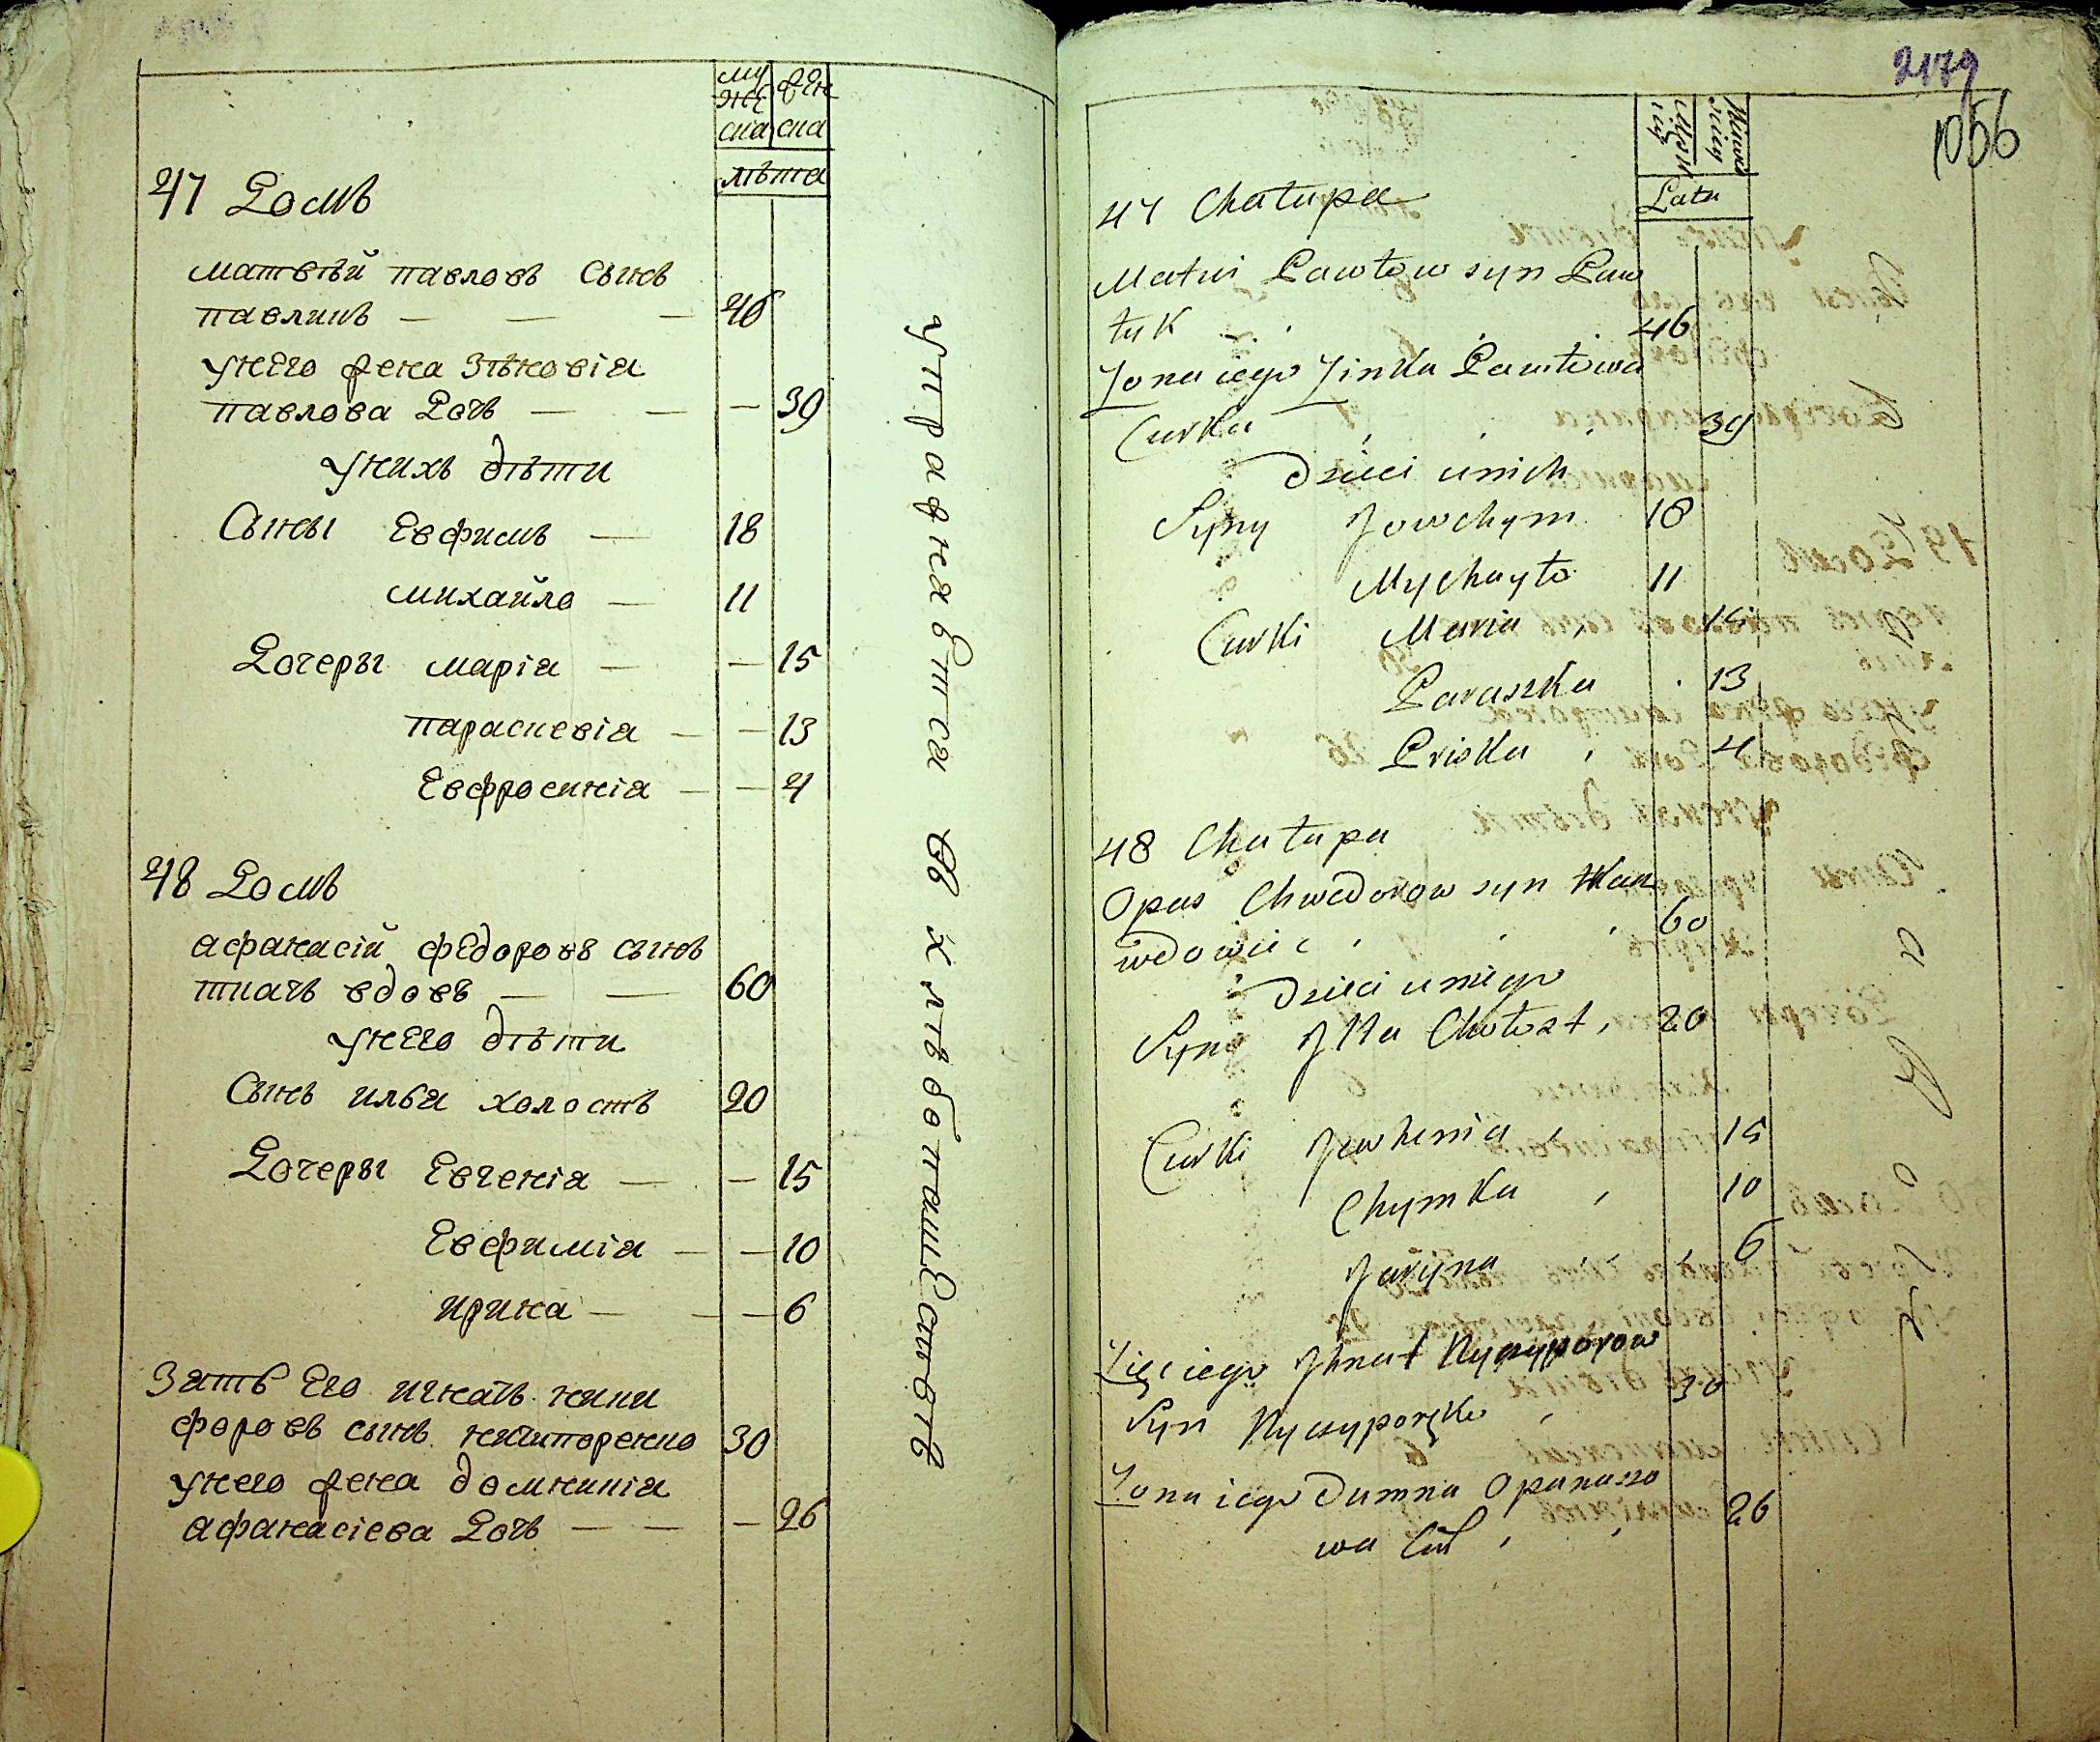 му
же
ска
жен
ска
лѣта
47 Домъ
матвѣй павловъ сынъ
павликъ — — — 46
унего жена Зѣновіа
павлова Дочь — — — 39
унихъ дѣти
Сыны Евфимъ — 18
михайло — 11
Дочеры маріа — — 15
параскевіа — — 13
Евфросиніа — — 4
48 Домъ
афанасій федоровъ сынъ
ткачь вдовъ — — 60
унего дѣти
Сынъ илья холостъ 20
Дочеры Евгеніа — — 15
Евфиміа — — 10
ирина — — 6
Зять Его игнатъ ники
форовъ сынъ ничипоренко 30
унего жена домникіа
афанасіева Дочь — — — 26
упражняется въ хлѣбопашествѣ
2179
1056
Latu
47 Chatupa
Matwi Pawłow syn Paw
łuk 46
Zona iego Zinka Pawłowa
Curka 39
Dzieci unich
Syny Jowchym 18
Mychayło 11
Curki Maria 15
Paraszka 13
Priska 4
48 Chatupa
Opas Chwedorow syn Tkacz
wdowiec 60
Dzieci uniego
Syn Jlla Chołost 20
Curki Jewhenia 15
Chymka 10
Jaryna 6
Zięć iego Jhnat Nyczyporow
Syn Nyczyporęko 30
Zona iego Dumna Opanaso
wa Cur 26